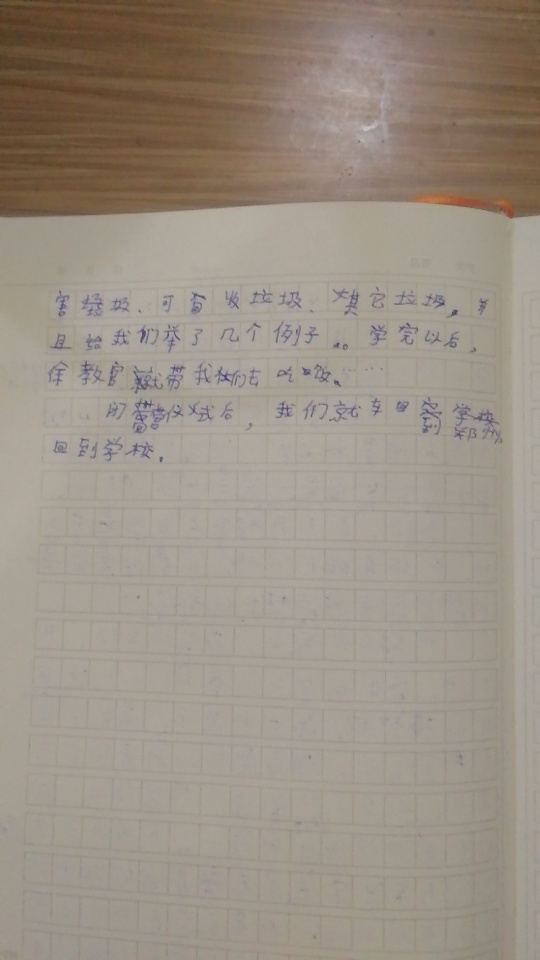 害垃圾、可回收垃圾、其它垃圾。并
且给我们举了几个例子。学完以后,
徐教官就带我们去吃饭。……
闭营仪式后,我们就车回到学校
回到学校。